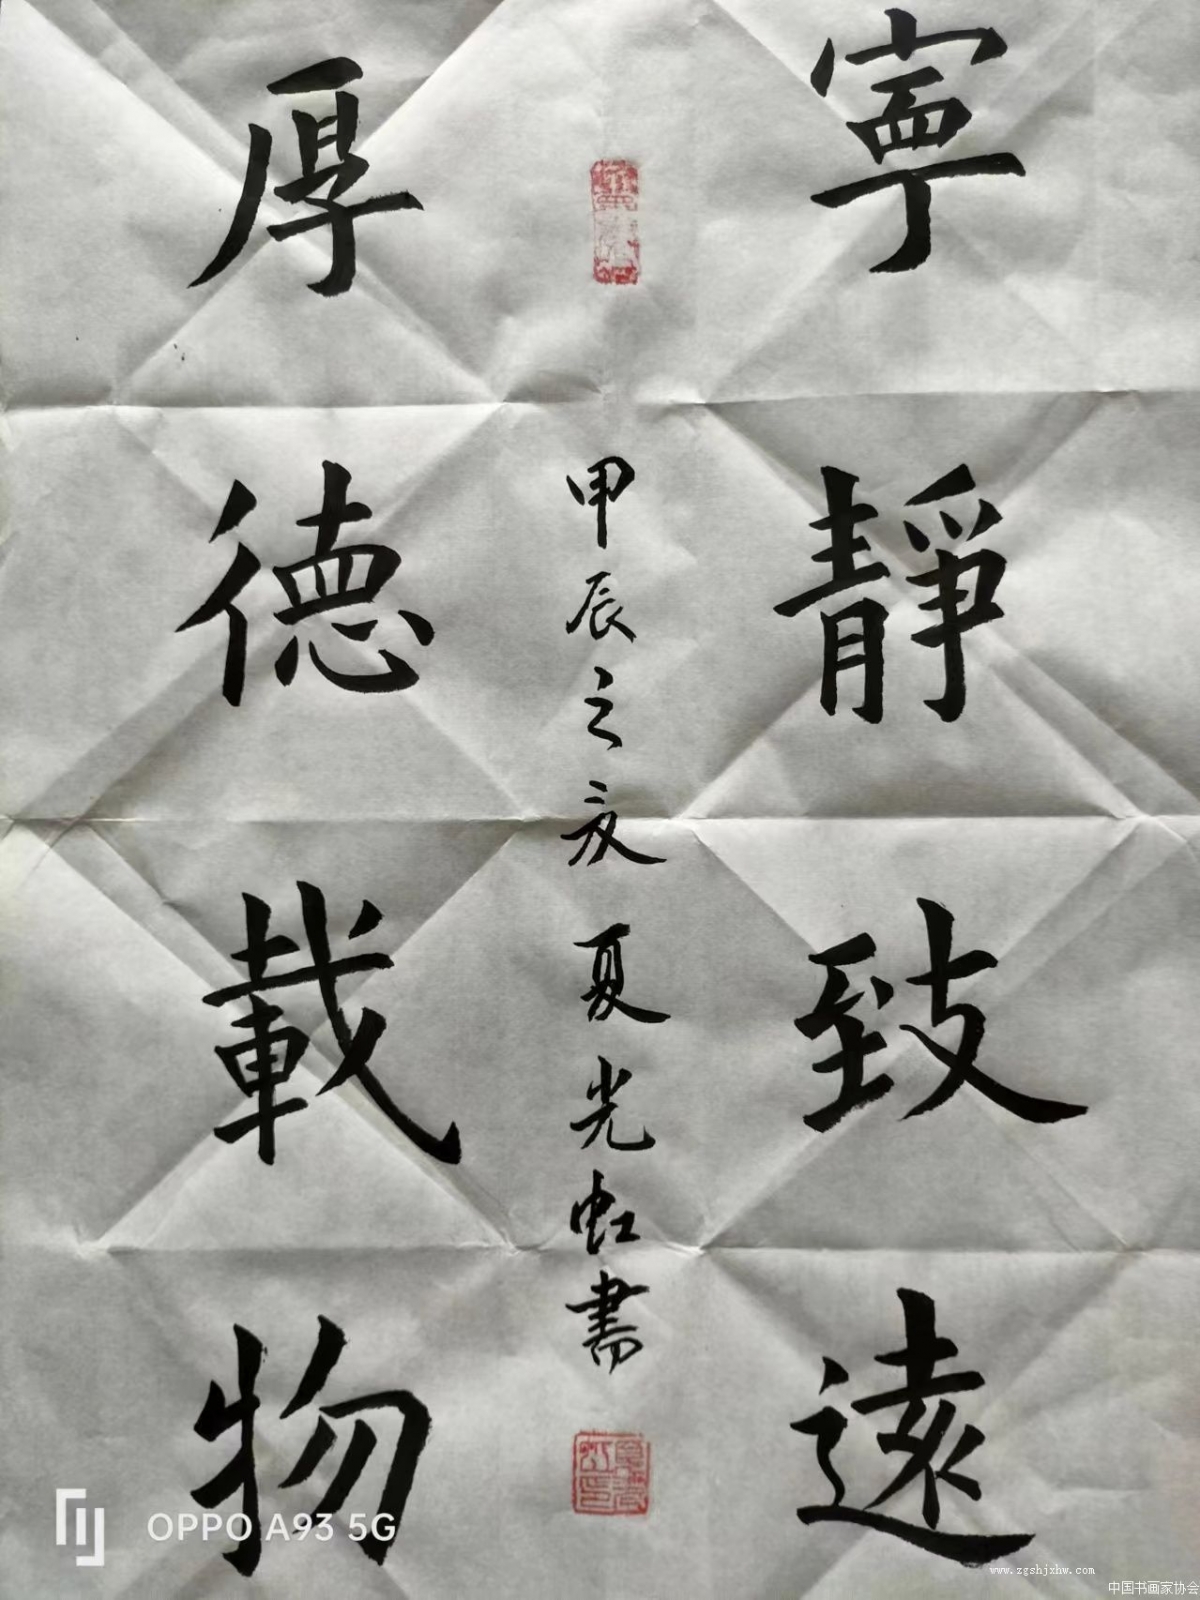 寧靜致遠
甲辰之夏 夏光虹書
夏光虹印
厚德載物
OPPO A93 5G
www.zgshjxhw.com
中国书画家协会